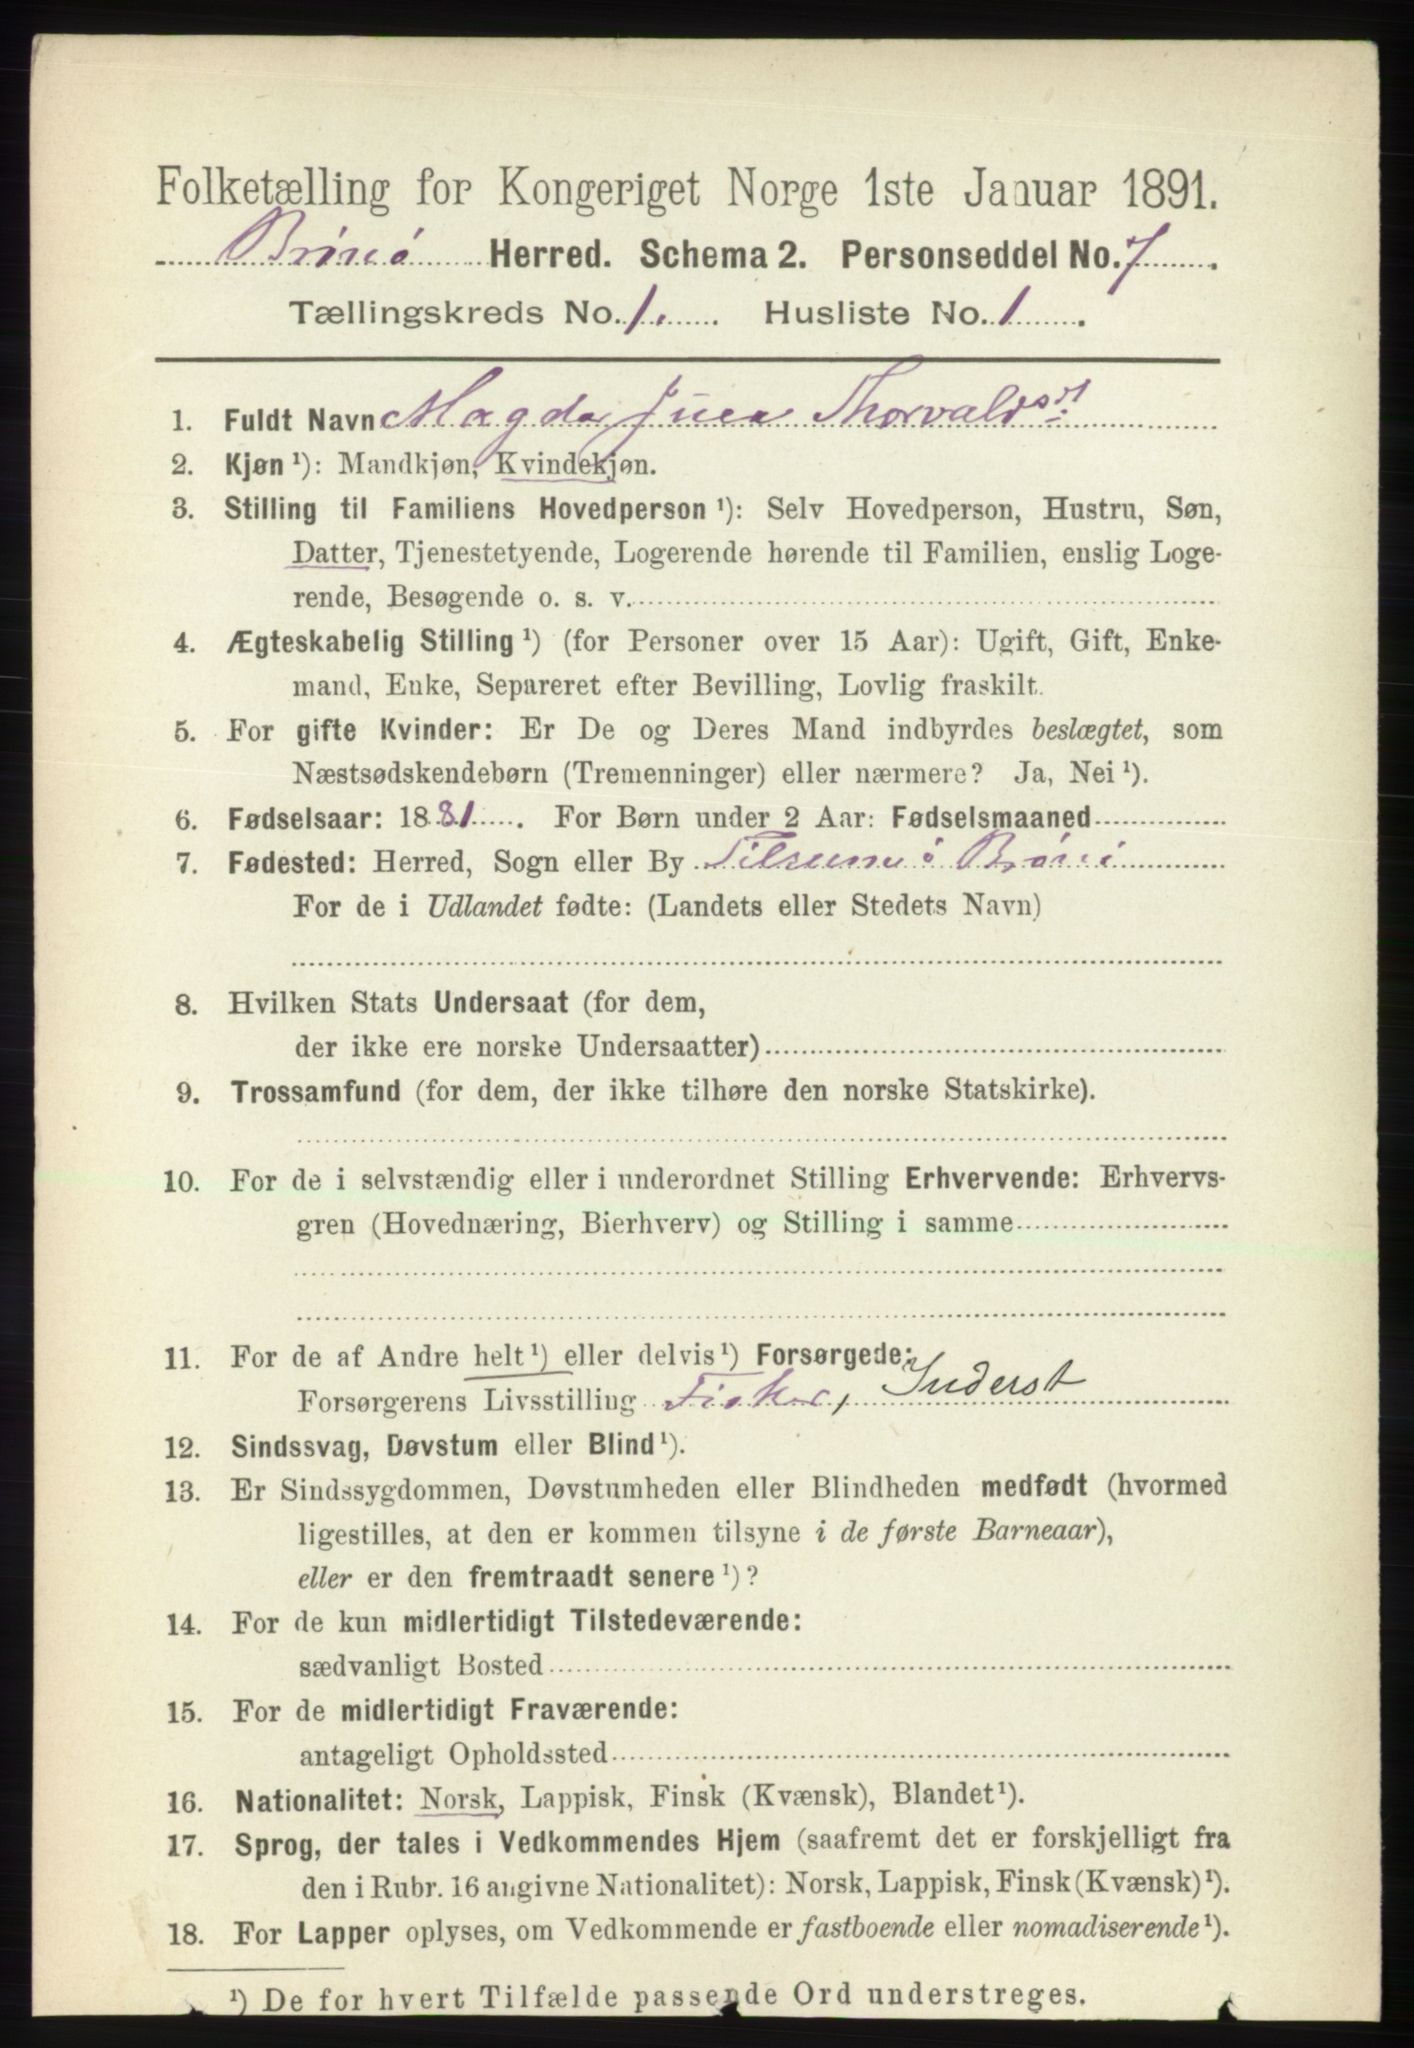 Folketælling for Kongeriget Norge 1ste Januar 1891.
Brønø Herred. Schema 2. Personseddel No. 7.
Tællingskreds No. 1. Husliste No. 1.
1. Fuldt Navn Magda Thorvaldsd.
2. Kjøn ¹): Mandkjøn, Kvindekjøn.
3. Stilling til Familiens Hovedperson ¹): Selv Hovedperson, Hustru, Søn,
Datter, Tjenestetyende, Logerende hørende til Familien, enslig Loge-
rende, Besøgende o. s. v.
4. Ægteskabelig Stilling ¹) (for Personer over 15 Aar): Ugift, Gift, Enke-
mand, Enke, Separeret efter Bevilling, Lovlig fraskilt.
5. For gifte Kvinder: Er De og Deres Mand indbyrdes beslægtet, som
Næstsødskendebørn (Tremenninger) eller nærmere? Ja, Nei ¹).
6. Fødselsaar: 1881. For Børn under 2 Aar: Fødselsmaaned
7. Fødested: Herred, Sogn eller By Tilrum i Brønø
For de i Udlandet fødte: (Landets eller Stedets Navn)
8. Hvilken Stats Undersaat (for dem,
der ikke ere norske Undersaatter)
9. Trossamfund (for dem, der ikke tilhøre den norske Statskirke).
10. For de i selvstændig eller i underordnet Stilling Erhvervende: Erhvervs-
gren (Hovednæring, Bierhverv) og Stilling i samme
11. For de af Andre helt ¹) eller delvis ¹) Forsørgede:
Forsørgerens Livsstilling Fisker, Inderst
12. Sindssvag, Døvstum eller Blind ¹).
13. Er Sindssygdommen, Døvstumheden eller Blindheden medfødt (hvormed
ligestilles, at den er kommen tilsyne i de første Barneaar),
eller er den fremtraadt senere ¹)?
14. For de kun midlertidigt Tilstedeværende:
sædvanligt Bosted
15. For de midlertidigt Fraværende:
antageligt Opholdssted
16. Nationalitet: Norsk, Lappisk, Finsk (Kvænsk), Blandet ¹).
17. Sprog, der tales i Vedkommendes Hjem (saafremt det er forskjelligt fra
den i Rubr. 16 angivne Nationalitet): Norsk, Lappisk, Finsk (Kvænsk) ¹).
18. For Lapper oplyses, om Vedkommende er fastboende eller nomadiserende ¹).
¹) De for hvert Tilfælde passende Ord understreges.